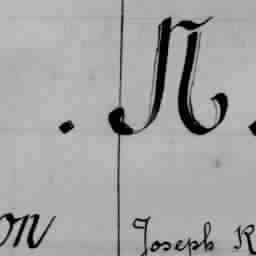 . N .
on Joseph R